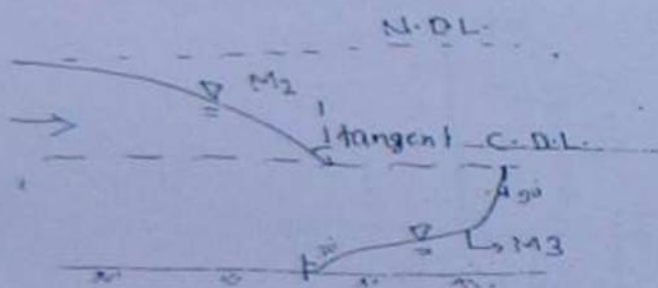 N.D.L.
M2
tangent C.D.L.
90
M3